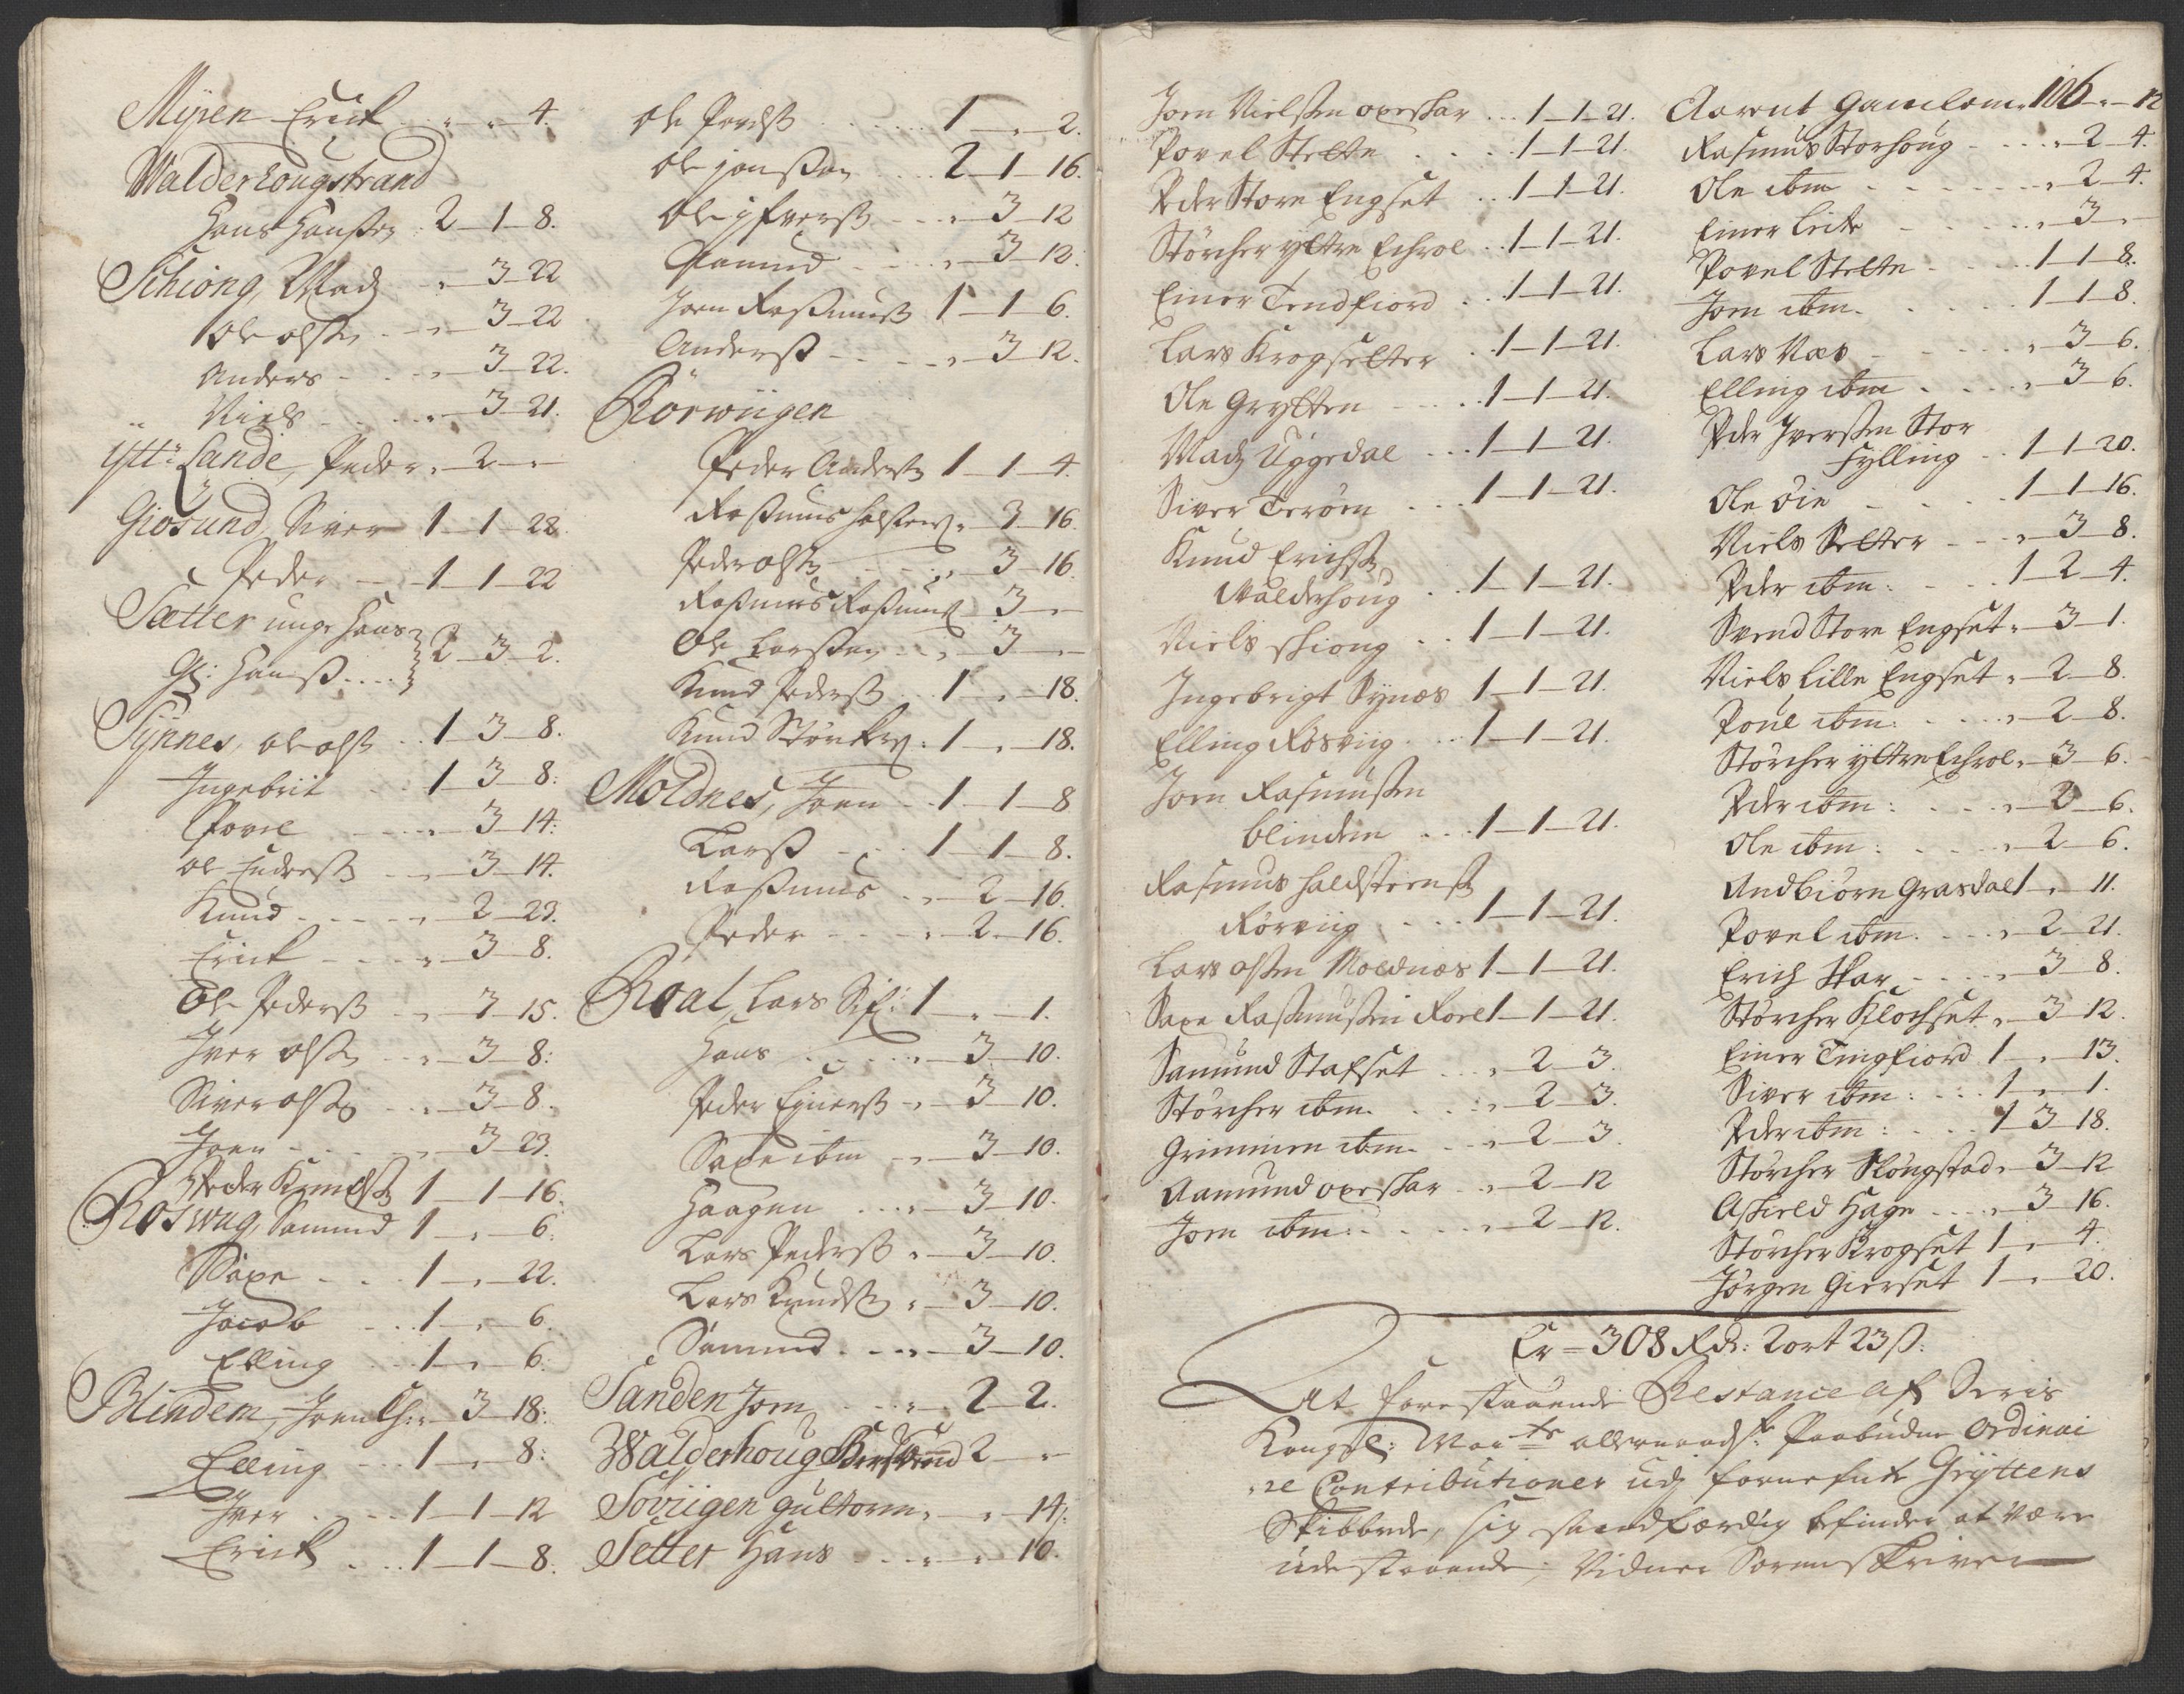 Myren Erick „ „ 4.
Walderhougstrand
Hans Hansen 2 1 8.
Schiong, Madz „ 3 22
Ole olsen „ 3 22
Anders „ 3 22.
Niels „ 3 21.
Ytt: Lande, Peder „ 2 „
Giøsund, Siver 1 1 22.
Peder 1 1 22
Sætter unge Hans
Gl: Hanss 2 3 2.
Synnes, ole olss 1 3 8.
Ingebrit 1 3 8.
Povel „ 3 14.
ole Enderss „ 3 14.
Knud „ 2 23.
Erick „ 3 8.
Ole Pederss „ 3 15.
Iver olsen „ 3 8.
Siver olsen „ 3 8.
Joen „ 3 23.
Peder Knudsen 1 1 16.
Røswug, Samund 1 „ 6.
Saxe 1 „ 22.
Jacob 1 „ 6.
Elling 1 „ 6.
Blindem, Joen Ols: „ 3 18.
Elling 1 „ 8.
Iver 1 1 12
Erick 1 1 8.
Ole Povelss 1 „ 2.
Ole jonssen 2 1 16.
Ole ifverss „ 3 12
Aamund „ 3 12.
Joen Rassmuss 1 1 6.
Anderss „ 3 12.
Rörwiigen
Peder Andersen 1 1 4.
Rassmus Halstens: „ 3 16.
Peder olsen „ 3 16.
Rassmus Rassmuss „ 3 „
Ole Larssen „ 3 „
Knud Pederss 1 „ 18.
Knud Störckers: 1 „ 18.
Moldnes, Joen 1 1 8
Larss 1 1 8.
Rassmus „ 2 16.
Peder „ 2 16.
Roal, Lars Sifs: 1 „ 1.
Hans „ 3 10.
Peder Einerss „ 3 10.
Saxe ibm „ 3 10.
Haagen „ 3 10.
Lars Pederss „ 3 10.
Lars Knudsen „ 3 10.
Samund „ 3 10.
Sanden Jorn „ 2 2.
Walderhoug 2 „
Søvriigen gultorm „ „ 14.
Setter Hans „ „ 10.
Joen Nielssen oxeskar 1 1 21.
Povel Stette 1 1 21.
Peder Store Engset 1 1 21.
Störcher yttre Echrol 1 1 21.
Einer Tendfiord 1 1 21.
Lars Krogsetter 1 1 21.
Ole Grytten 1 1 21.
Madz Uggedal 1 1 21.
Siver Terøen 1 1 21.
Knud Erichsen
Walderhoug 1 1 21.
Niels Schiong 1 1 21.
Ingebrigt Synæs 1 1 21.
Elling Røsviig 1 1 21.
Joen Rasmussen
blindem 1 1 21.
Rasmus Haldsteenss
Rörviig 1 1 21.
Lars olssen Moldnæs 1 1 21.
Saxe Rassmussen Roel 1 1 21.
Samund Stafset „ 2 3.
Störcher ibm. „ 2 3.
Grimmen ibm. „ 2 3.
Aamund oxeskar „ 2 12
Joen ibm: „ 2 12.
106
Aarent Gamlem „ „ 12
Rasmus Storhoug „ 2 4.
Ole ibm „ 2 4.
Einer Leite „ 3 „
Povel Stette 1 1 8.
Joen ibm. 1 1 8.
Lars Næs „ 3 6.
Elling ibm „ 3 6.
Peder Iverssen Stor
Fylling 1 1 20.
Ole Øie 1 1 16.
Niels Selter „ 3 8.
Peder ibm: 1 2 4.
Svend Store Engset „ 3 1.
Niels Lille Engset „ 2 8.
Poul ibm: „ 2 8.
Störcher yttre Echrol „ 3 6.
Peder ibm: „ 3 6.
Ole ibm: „ 2 6.
Andbiørn Grasdal 1 „ 11.
Povel ibm. „ 2 21.
Erich Skar „ 3 8.
Störcher Klochset „ 3 12.
Einer Tingfiord 1 „ 13.
Siver ibm: 1 „ 1.
Peder ibm: 1 3 18.
Störcher Slöngstad „ 3 12
Askield Hage „ 3 16.
Störcher Krogset 1 „ 4.
Jörgen Gierset 1 „ 20.
Er = 308 Rdr: 2 ort 23 ß.
At forestaaende Restance af Deris
Kongel: Maits allernaadst Paabudne Ordinai
re Contributioner udj forneffnte Gryttens
Skibbrede, sig saandfærdig befinder at være
udestaaende, Vidner Sorenskriver